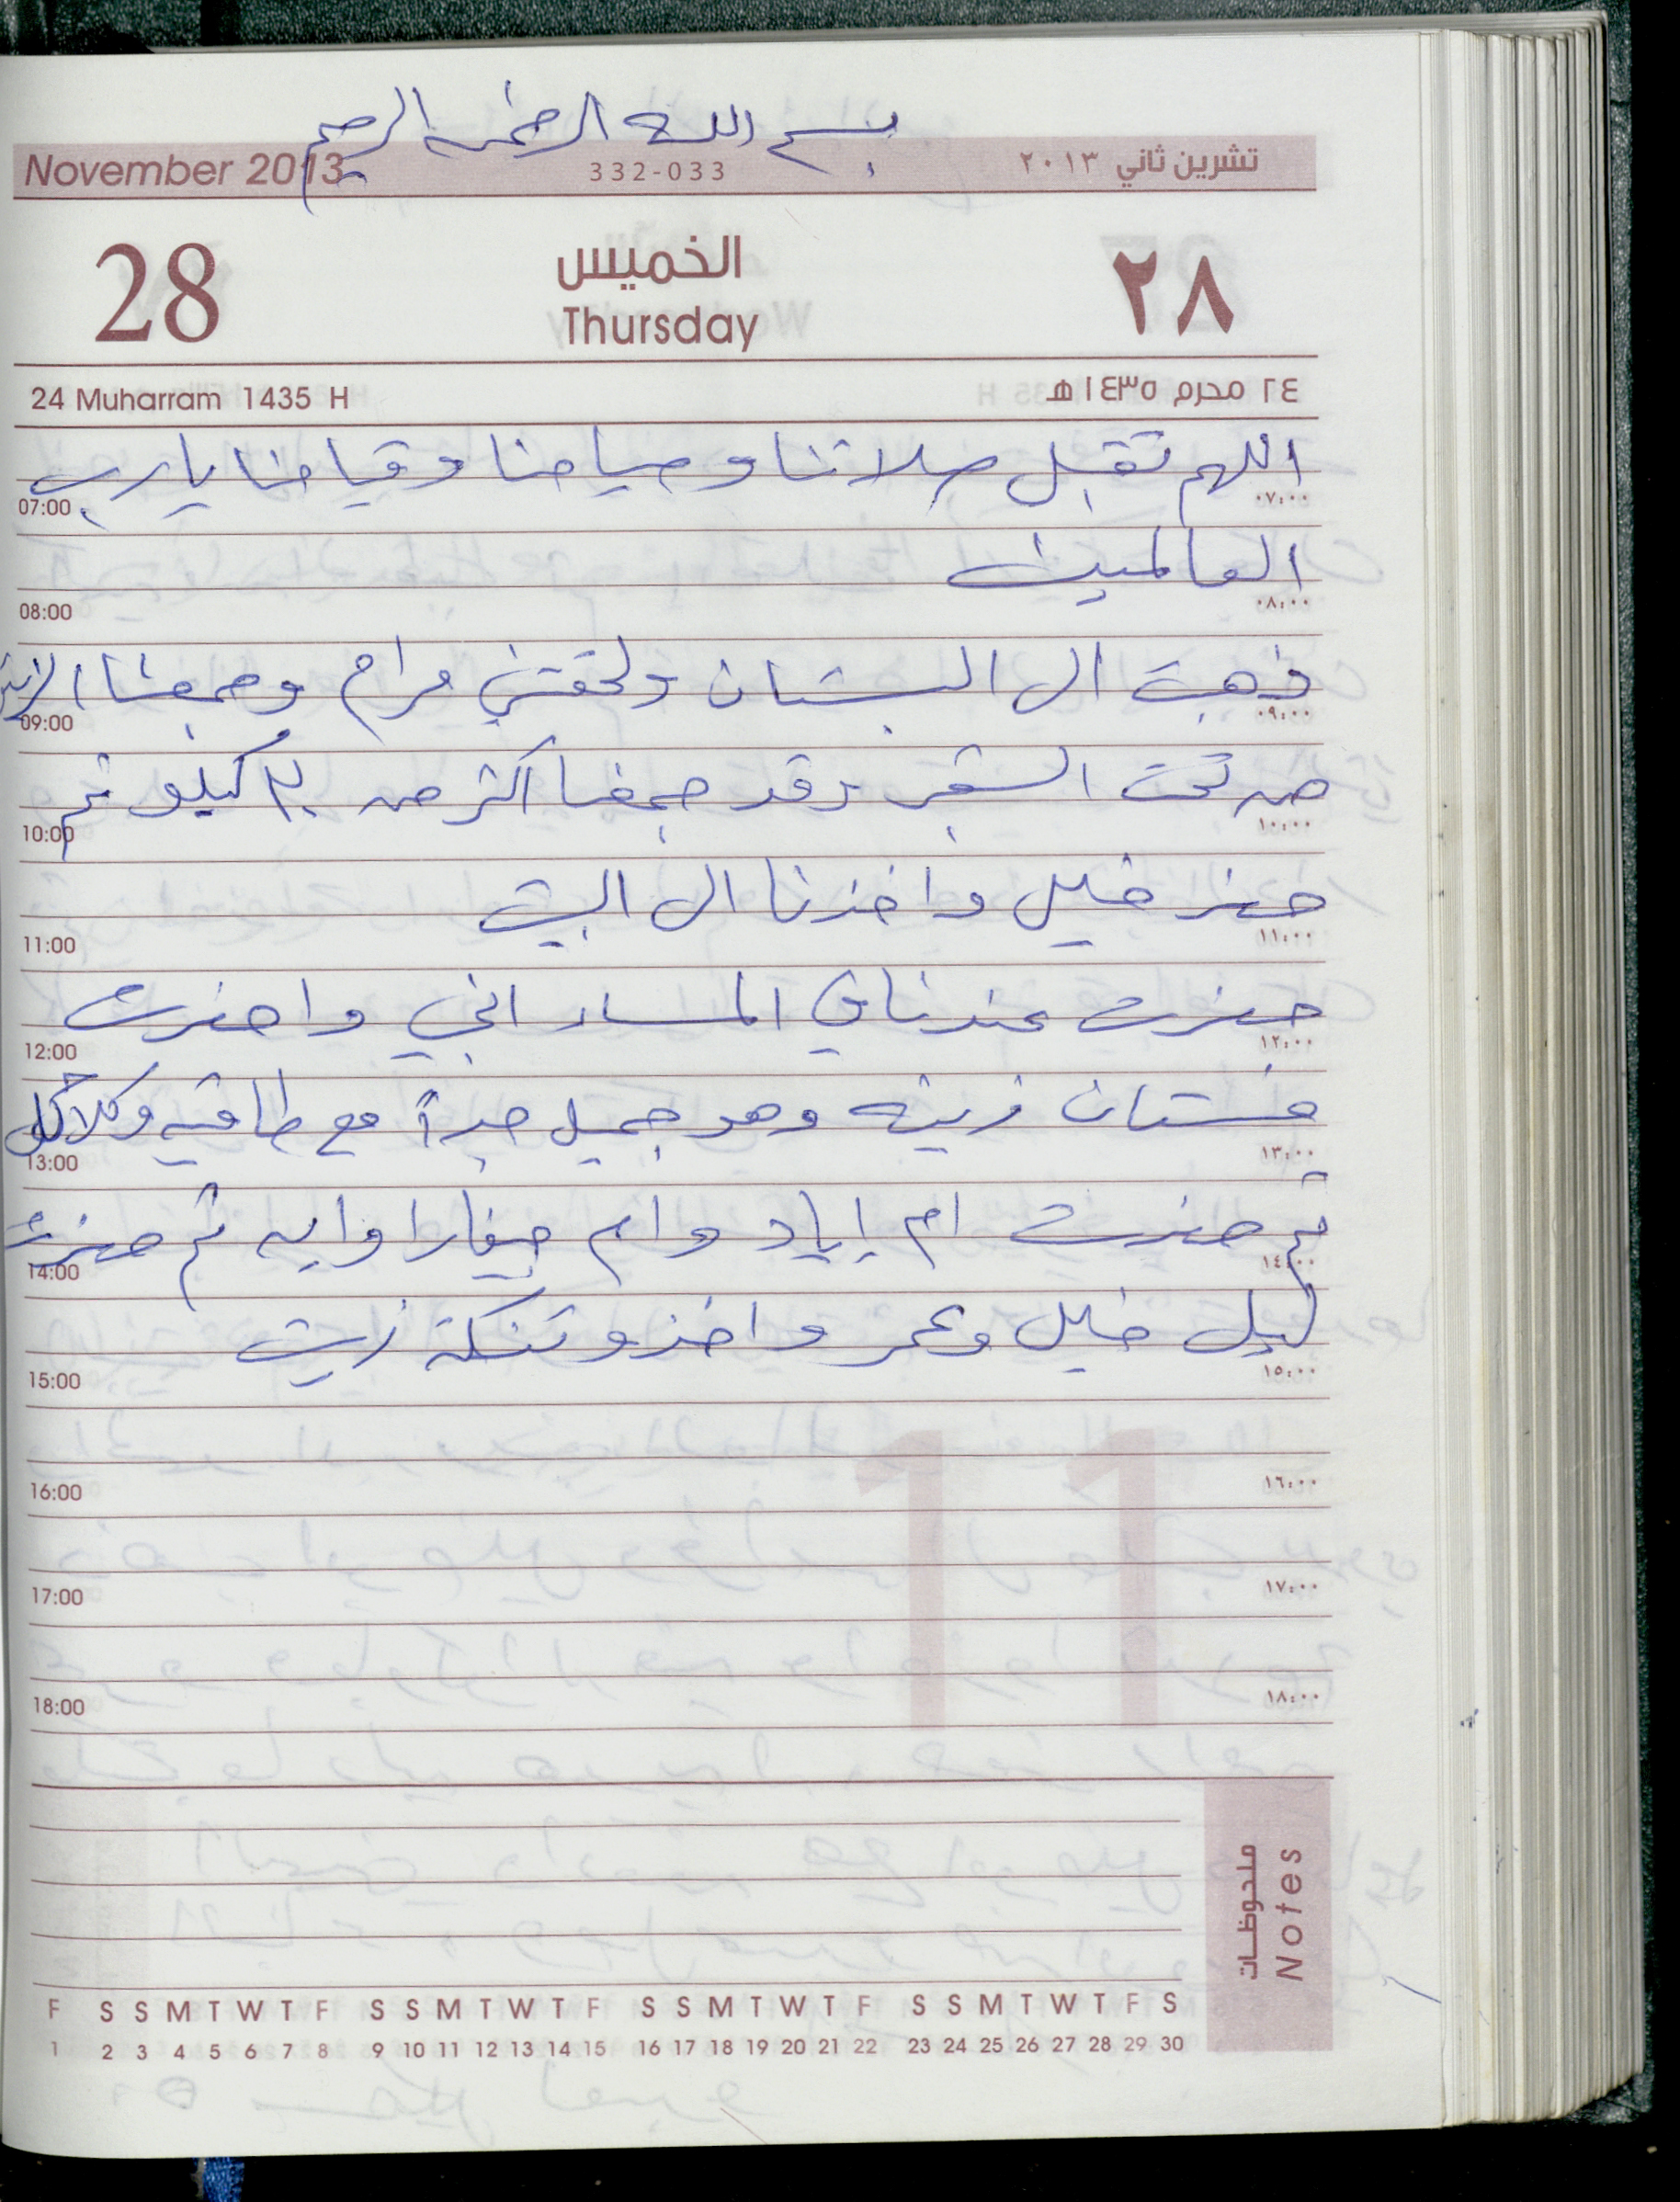 بسم الله الرحمن الرحيم
November 2013 332-033 تشرين ثاني ٢٠١٣
28 الخميس ٢٨
Thursday
24 Muharram 1435 H ٢٤ محرم ١٤٣٥ هـ
اللهم تقبل صلاتنا وصيامنا وقيامنا يا رب
07:00 ٠٧:٠٠
العالمين
08:00 ٠٨:٠٠
ذهبت ال البستان ولحقتني مرام وجمعنا
09:00 ٠٩:٠٠
من تحت الشجر وقد جمعنا أكثر من كيلو ثم
10:00 ١٠:٠٠
حضر خليل واخذنا ال البيت
11:00 ١١:٠٠
حضرت عندنا في المساء اني واحضرت
12:00 ١٢:٠٠
فستان زينه وهو جميل جداً مع طاقيه
13:00 ١٣:٠٠
ثم حضرت ام إياد وام جيفارا ثم حضرت
14:00 ١٤:٠٠
خليل وعمر واخذو تنكة زيت
15:00 ١٥:٠٠
16:00 ١٦:٠٠
17:00 ١٧:٠٠
18:00 ١٨:٠٠
ملحوظات
Notes
F S S M T W T F S S M T W T F S S M T W T F S S M T W T F S
1 2 3 4 5 6 7 8 9 10 11 12 13 14 15 16 17 18 19 20 21 22 23 24 25 26 27 28 29 30